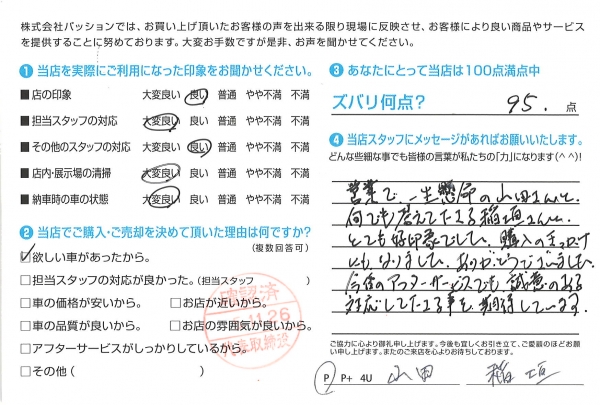 株式会社パッションでは、お買い上げ頂いたお客様の声を出来る限り現場に反映させ、お客様により良い商品やサービス
を提供することに努めております。大変お手数ですが是非、お声を聞かせてください。
1 当店を実際にご利用になった印象をお聞かせください。
■店の印象 大変良い 良い 普通 やや不満 不満
■担当スタッフの対応 大変良い 良い 普通 やや不満 不満
■その他のスタッフの対応 大変良い 良い 普通 やや不満 不満
■店内・展示場の清掃 大変良い 良い 普通 やや不満 不満
■納車時の車の状態 大変良い 良い 普通 やや不満 不満
2 当店でご購入・ご売却を決めて頂いた理由は何ですか?
(複数回答可)
☑欲しい車があったから。
□担当スタッフの対応が良かった。(担当スタッフ )
□車の価格が安いから。 □お店が近いから。
□車の品質が良いから。 □お店の雰囲気が良いから。
□アフターサービスがしっかりしているから。
□その他( )
確認済
11.26
代表取締役
3 あなたにとって当店は100点満点中
ズバリ何点? 95. 点
4 当店スタッフにメッセージがあればお願いいたします。
どんな些細な事でも皆様の言葉が私たちの「力」になります(^^)!
営業で、一生懸命の山田さんと、
何でも答えてくださる稲垣さんと、
とても好印象でした。購入のきっかけ
にもなりました。ありがとうございました。
今後のアフターサービスでも、誠意のある
対応してくださる事を期待しています。
ご協力に心より御礼申し上げます。今後も宜しくお引き立て、ご愛顧のほどお願
い申し上げます。またのご来店を心よりお待ちしております。
P P+ 4U 山田 稲垣